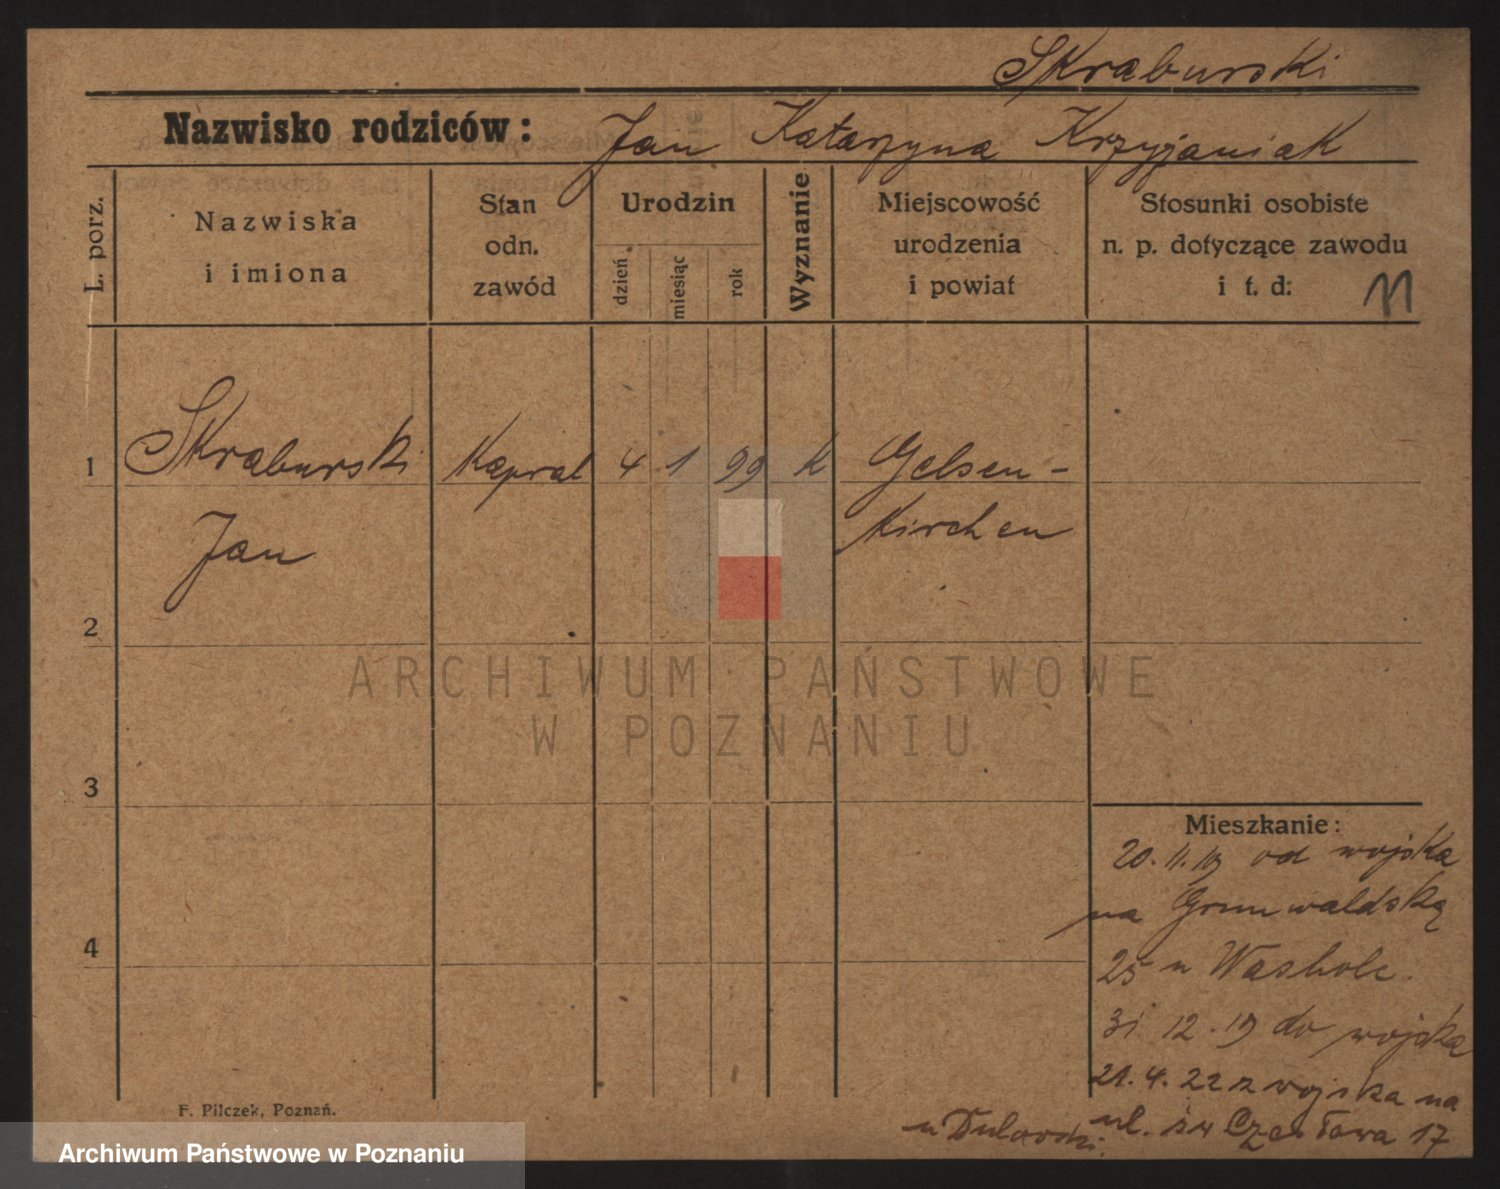 Skraburski
Nazwisko rodziców: Jan Katarzyna Krzyżaniak
L. porz.
Nazwiska
i imiona
Stan
odn.
zawód
Urodzin
dzień
miesiąc
rok
Wyznanie
Miejscowość
urodzenia
i powiat
Stosunki osobiste
n. p. dotyczące zawodu
i t. d:
11
1 Skraburski Kapral 4 1 99 K Gelsen-
Jan kirchen
2
ARCHIWUM PAŃSTWOWE
W POZNANIU
3
Mieszkanie:
20.11.19 od wojska
na Grunwaldską
25 u
4
31.12.19 do wojska
21.4.22 z wojska na
ul. św Czesława 17
u
F. Pilczek, Poznań.
Archiwum Państwowe w Poznaniu